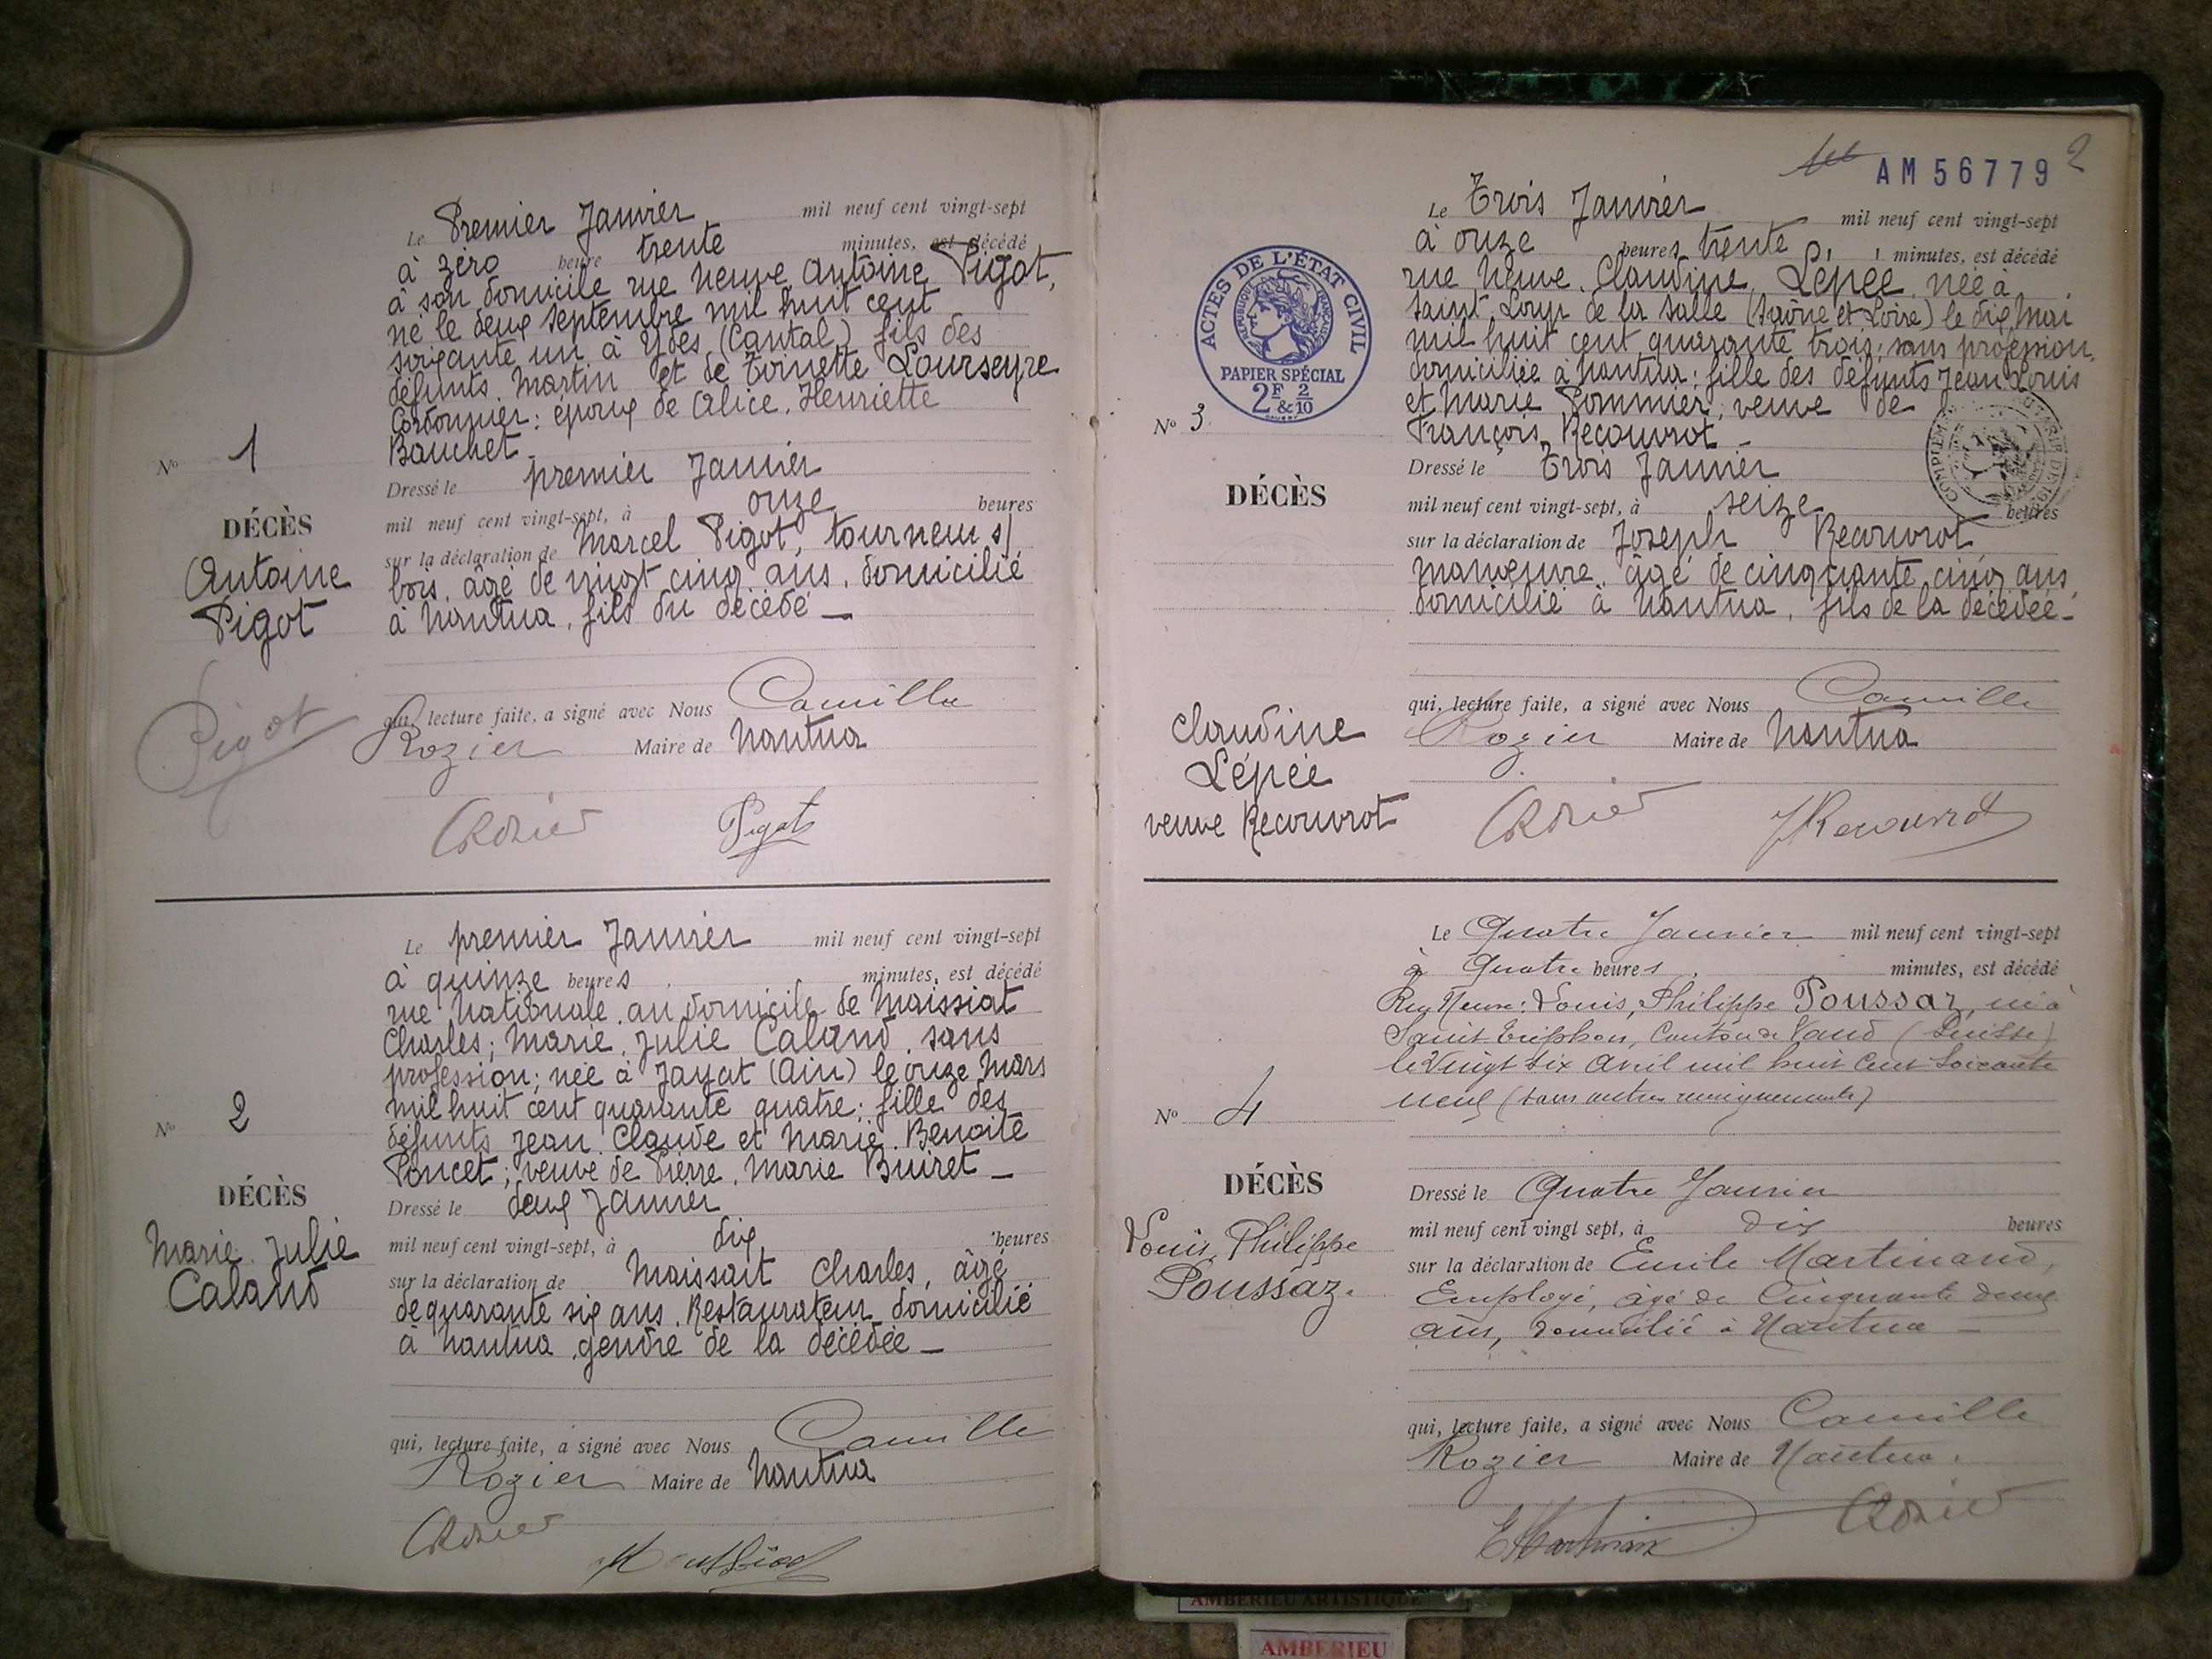 Le Premier Janvier mil neuf cent vingt-sept
à zéro heure trente minutes, est décédé
à son domicile rue Neuve Antoine Pigot,
né le deux septembre mil huit cent
soixante un à Ydes (Cantal) fils des
défunts Martin et de Toinette Lourseyre
Cordonnier : époux de Alice, Henriette
Bauchet
Dressé le premier Janvier
mil neuf cent vingt-sept, à onze heures
sur la déclaration de Marcel Pigot, tourneur s/
bois, âgé de vingt cinq ans, domicilié
à Nantua, fils du décédé —
qui, lecture faite, a signé avec Nous Camille
Rozier Maire de Nantua
CRozier Pigot
No 1
DÉCÈS
Antoine
Pigot
Pigot
Le premier Janvier mil neuf cent vingt-sept
à quinze heures minutes, est décédé
rue Nationale, au domicile de Maissiat
Charles ; Marie, Julie Caland, sans
profession ; née à Jayat (Ain) le onze Mars
mil huit cent quarante quatre ; fille des
défunts Jean Claude et Marie, Benoite
Poncet ; veuve de Pierre, Marie Buiret —
Dressé le deux Janvier
mil neuf cent vingt-sept, à dix heures
sur la déclaration de Maissait Charles, âgé
de quarante six ans, Restaurateur, domicilié
à Nantua, gendre de la décédée —
qui, lecture faite, a signé avec Nous Camille
Rozier Maire de Nantua
CRozier
No 2
DÉCÈS
Marie Julie
Caland
AM 56779 2
Le Trois Janvier mil neuf cent vingt-sept
à onze heures trente minutes, est décédé
rue Neuve, Claudine, Lépée, née à
Saint Loup de la Salle (Saône et Loire) le dix Mai
mil huit cent quarante trois ; sans profession,
domiciliée à Nantua ; fille des défunts Jean Louis
et Marie Pommier ; veuve de
François Recouvrot —
Dressé le Trois Janvier
mil neuf cent vingt-sept, à seize heures
sur la déclaration de Joseph Recouvrot
manoeuvre, âgé de cinquante cinq ans,
domicilié à Nantua, fils de la décédée —
qui, lecture faite, a signé avec Nous Camille
Rozier Maire de Nantua
CRozier JRecouvrot
ACTES DE L'ÉTAT CIVIL
RÉPUBLIQUE FRANÇAISE
PAPIER SPÉCIAL
2F & 2/10
No 3
DÉCÈS
Claudine
Lépée
veuve Recouvrot
Le Quatre Janvier mil neuf cent vingt-sept
à Quatre heures minutes, est décédé
Rue Neuve : Louis, Philippe Poussaz, né à
Saint Triphon, Canton de Vaud (Suisse)
le Vingt six Avril mil huit cent soixante
neuf (sans autres renseignements)
Dressé le Quatre Janvier
mil neuf cent vingt sept, à dix heures
sur la déclaration de Emile Martinand,
Employé, âgé de Cinquante deux
ans, domicilié à Nantua —
qui, lecture faite, a signé avec Nous Camille
Rozier Maire de Nantua.
CRozier
No 4
DÉCÈS
Louis, Philippe
Poussaz.
AMBERIEU ARTISTIQUE
AMBERIEU